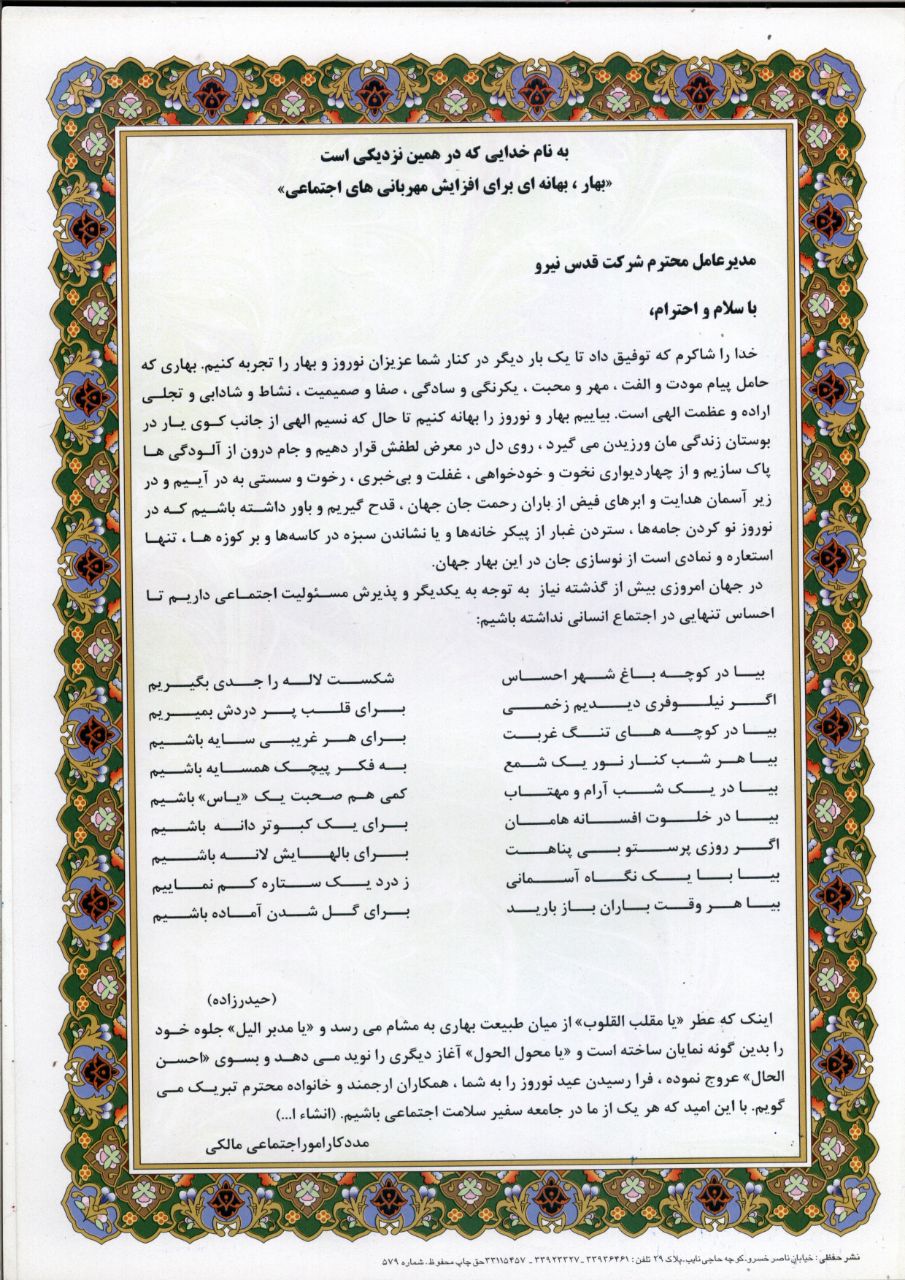 به نام خدایی که در همین نزدیکی است
«بهار ، بهانه ای برای افزایش مهربانی های اجتماعی»
مدیرعامل محترم شرکت قدس نیرو
با سلام و احترام،
خدا را شاکرم که توفیق داد تا یک بار دیگر در کنار شما عزیزان نوروز و بهار را تجربه کنیم. بهاری که
حامل پیام مودت و الفت ، مهر و محبت ، یکرنگی و سادگی ، صفا و صمیمیت ، نشاط و شادابی و تجلی
اراده و عظمت الهی است. بیاییم بهار و نوروز را بهانه کنیم تا حال که نسیم الهی از جانب کوی یار در
بوستان زندگی مان ورزیدن می گیرد ، روی دل در معرض لطفش قرار دهیم و جام درون از آلودگی ها
پاک سازیم و از چهاردیواری نخوت و خودخواهی ، غفلت و بی‌خبری ، رخوت و سستی به در آییم و در
زیر آسمان هدایت و ابرهای فیض از باران رحمت جان جهان ، قدح گیریم و باور داشته باشیم که در
نوروز نو کردن جامه‌ها ، ستردن غبار از پیکر خانه‌ها و یا نشاندن سبزه در کاسه‌ها و بر کوزه ها ، تنها
استعاره و نمادی است از نوسازی جان در این بهار جهان.
در جهان امروزی بیش از گذشته نیاز به توجه به یکدیگر و پذیرش مسئولیت اجتماعی داریم تا
احساس تنهایی در اجتماع انسانی نداشته باشیم:
بیا در کوچه باغ شهر احساس شکست لاله را جدی بگیریم
اگر نیلوفری دیدیم زخمی برای قلب پر دردش بمیریم
بیا در کوچه های تنگ غربت برای هر غریبی سایه باشیم
بیا هر شب کنار نور یک شمع به فکر پیچک همسایه باشیم
بیا در یک شب آرام و مهتاب کمی هم صحبت یک «یاس» باشیم
بیا در خلوت افسانه هامان برای یک کبوتر دانه باشیم
اگر روزی پرستو بی پناهت برای بالهایش لانه باشیم
بیا با یک نگاه آسمانی ز درد یک ستاره کم نماییم
بیا هر وقت باران باز بارید برای گل شدن آماده باشیم
(حیدرزاده)
اینک که عطر «یا مقلب القلوب» از میان طبیعت بهاری به مشام می رسد و «یا مدبر الیل» جلوه خود
را بدین گونه نمایان ساخته است و «یا محول الحول» آغاز دیگری را نوید می دهد و بسوی «احسن
الحال» عروج نموده ، فرا رسیدن عید نوروز را به شما ، همکاران ارجمند و خانواده محترم تبریک می
گویم. با این امید که هر یک از ما در جامعه سفیر سلامت اجتماعی باشیم. (انشاء ا...)
مددکارامور اجتماعی مالکی
نشر حفظی : خیابان ناصر خسرو، کوچه حاجی نایب، پلاک ۲۹ تلفن : ۳۳۹۳۶۴۶۱ ـ ۳۳۹۲۳۳۲۷ ـ ۳۳۱۱۵۴۵۷ حق چاپ محفوظ، شماره ۵۷۹